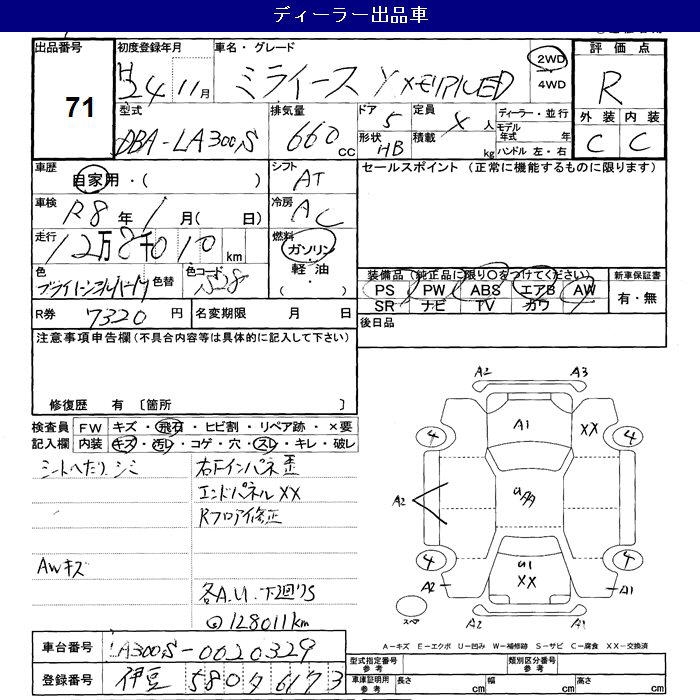 ディーラー出品車
出品番号 71
初度登録年月 H24年11月
車名・グレード ミライース
2WD
4WD
評価点 R
外装 内装
C C
型式 DBA-LA300S
排気量 660 cc
ドア 5
形状 HB
定員 人
積載 kg
ディーラー・並行
モデル年式 年
ハンドル 左・右
車歴 自家用・( )
シフト AT
セールスポイント (正常に機能するものに限ります)
車検 R8年1月( 日)
冷房 AC
走行 12万8千010 km
燃料 ガソリン・軽油・( )
色
色替
色コード S28
装備品(純正品に限り○をつけてください)
新車保証書
PS PW ABS エアB AW
SR ナビ TV カワ
有・無
R券 7320 円
名変期限 月 日
後日品
注意事項申告欄(不具合内容等は具体的に記入して下さい)
修復歴 有 〔箇所 〕
検査員記入欄
FW キズ・飛石・ヒビ割・リペア跡・×要
内装 キズ・汚レ・コゲ・穴・スレ・キレ・破レ
シートへたり シミ
右Fインパネ歪
エンドパネルXX
Rフロア修正
AWキズ
各A.U.下廻りS
◎128011km
A2 A3
A1 XX
4 4
A2
4 4
U1
XX
A2 A1
A2 A1
スペア
A-キズ E-エクボ U-凹み W-補修跡 S-サビ C-腐食 XX-交換済
車台番号 LA300S-0020329
登録番号 伊豆 580 タ 6173
型式指定番号 参考
類別区分番号 参考
車庫証明用 参考
長さ cm 幅 cm 高さ cm